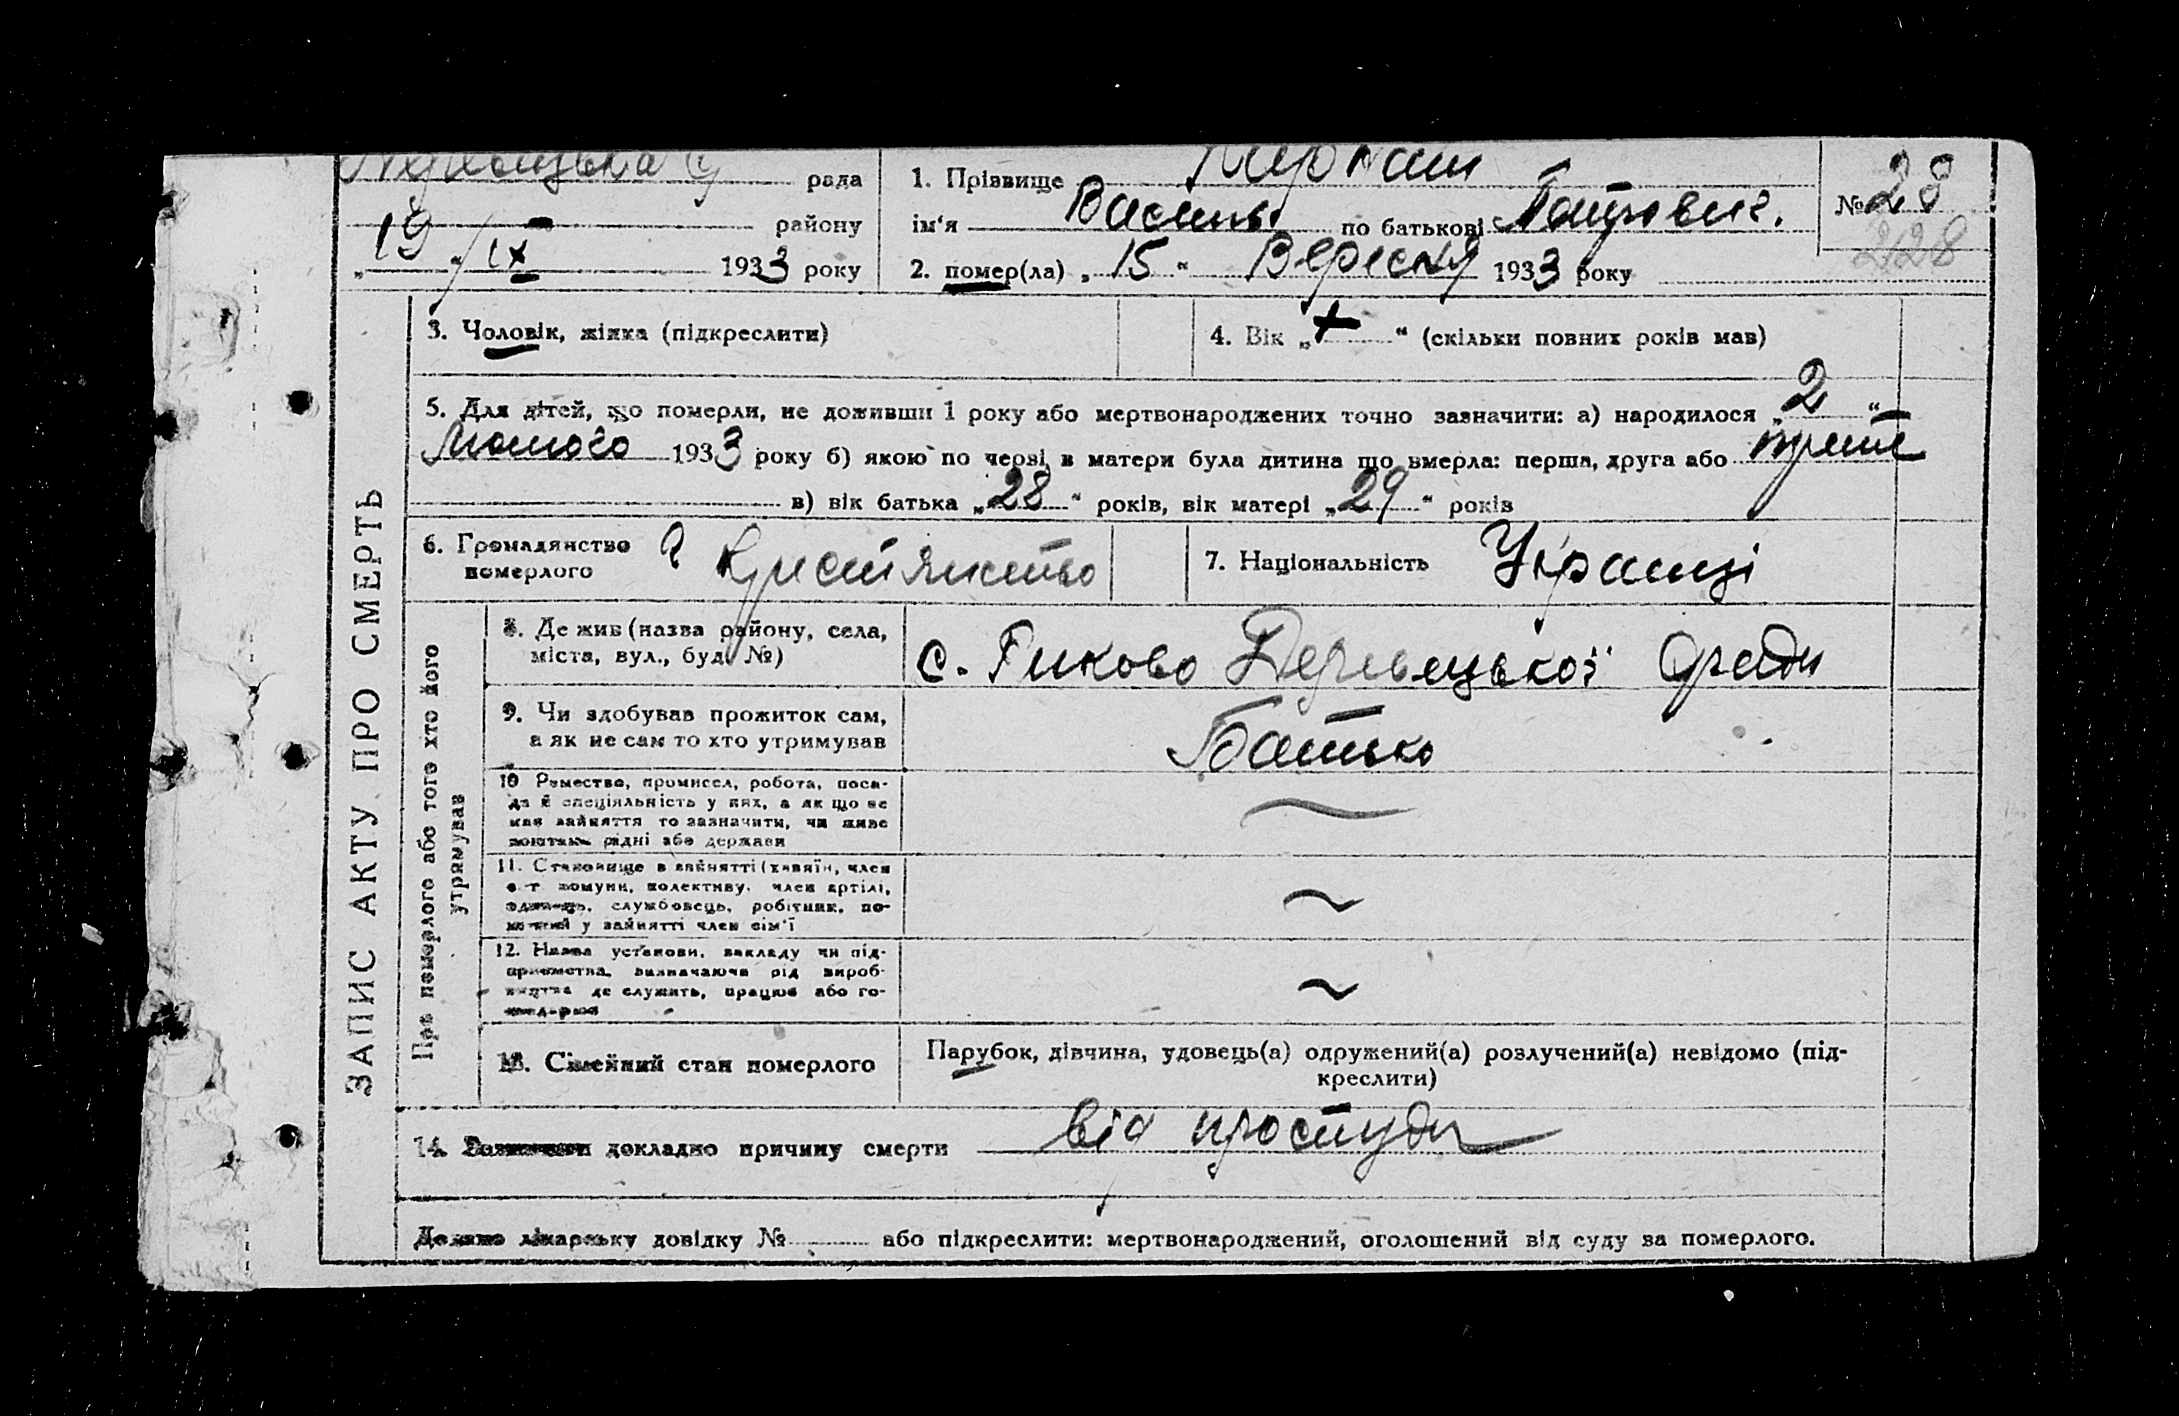 рада
1. Прізвище
№ 28
района
ім'я Василь по батькові
228
„19“ IX 1933 року
2. помер(ла) „15“ Вересня 1933 року
3. Чоловік, жінка (підкреслити)
4. Вік „+“ (скільки повних років мав)
5. Для дітей, що померли, не доживши 1 року або мертвонароджених точно зазначити: а) народилося „2“
Лютого 1933 року б) якою по черзі в матери була дитина що вмерла: перша, друга або третє
в) вік батька „28“ років, вік матері „29“ років
6. Громадянство
померлого
7. Національність Украінці
ЗАПИС АКТУ ПРО СМЕРТЬ
Про померлого або того хто його
утримував
8. Де жив (назва району, села,
міста, вул., буд. №)
с. Гиково С/ради
9. Чи здобував прожиток сам,
а як не сам то хто утримував
Батько
10 Ремество, промисел, робота, поса-
да й спеціяльність у них, а як що не
мав зайняття то зазначити, чи живе
коштами рідні або держави
11. Становище в зайнятті (хазяїн, член
с-г комуни, колективу, член артілі,
одинець, службовець, робітник, по-
мічний у зайнятті член сім'ї
12. Назва установи, закладу чи під-
приємства, зазначаючи рід вироб-
ництва де служить, працює або го-
13. Сімейний стан померлого
Парубок, дівчина, удовець(а) одружений(а) розлучений(а) невідомо (під-
креслити)
14. Зазначити докладно причину смерти від простуди
Додано лікарську довідку № або підкреслити: мертвонароджений, оголошений від суду за померлого.